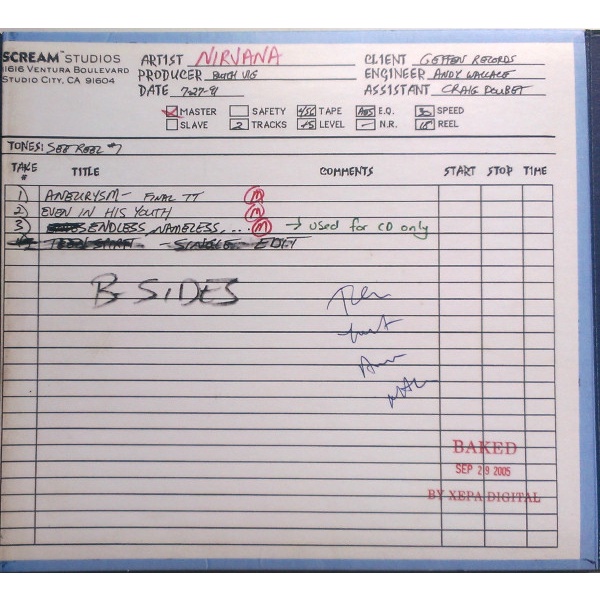 SCREAM™ STUDIOS
11616 VENTURA BOULEVARD
STUDIO CITY, CA 91604
ARTIST NIRVANA
PRODUCER BUTCH VIG
DATE 7-27-91
CLIENT GEFFEN RECORDS
ENGINEER ANDY WALLACE
ASSISTANT CRAIG DOUBET
MASTER SAFETY TAPE E.Q. 30 SPEED
SLAVE 2 TRACKS +5 LEVEL - N.R. REEL
TONES: SEE REEL #7
TAKE # TITLE COMMENTS START STOP TIME
1) ANEURYSM - FINAL TT M
2) EVEN IN HIS YOUTH M
3) ENDLESS, NAMELESS, ... M → used for CD only
TEEN SPIRIT - SINGLE EDIT
B-SIDES
BAKED
SEP 29 2005
BY XEPA DIGITAL